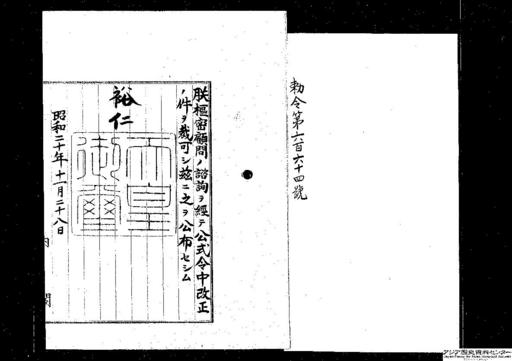 勅令第六百六十四號
朕樞密顧問ノ諮詢ヲ經テ公式令中改正
ノ件ヲ裁可シ茲ニ之ヲ公布セシム
裕仁
天皇御璽
昭和二十年十一月二十八日
内閣
アジア歴史資料センター